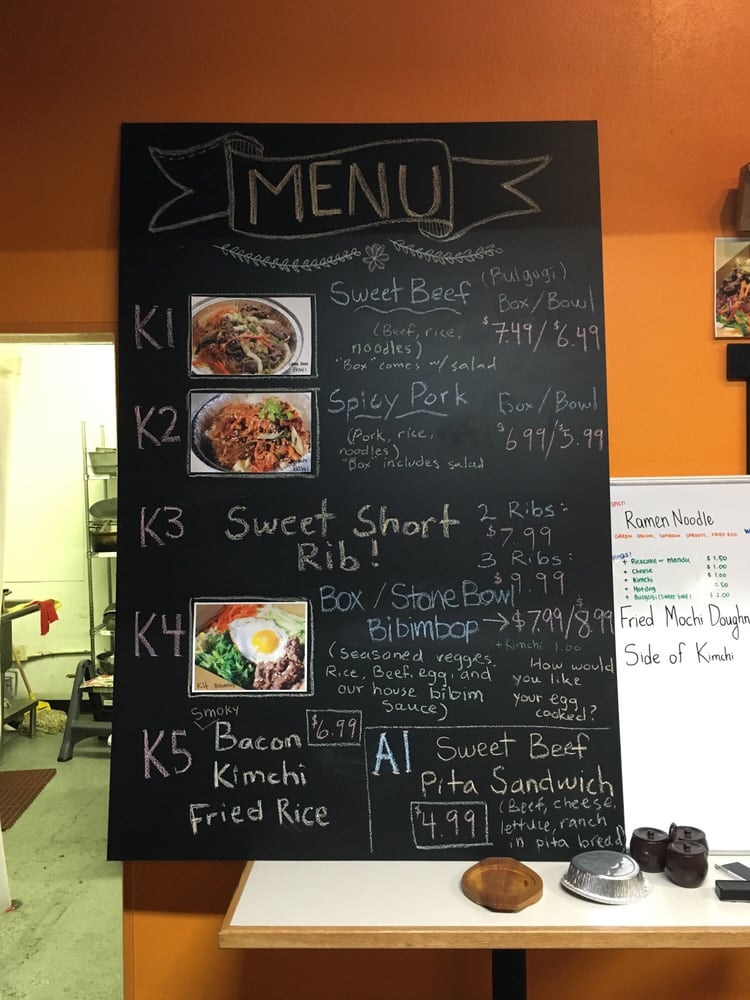 MENU
K1
Sweet Beef (Bulgogi)
Box/Bowl
$7.49/$6.49
(Beef, rice,
noodles)
"Box" comes w/ salad
BOWL
K2
Spicy Pork
Box/Bowl
$6.99/$5.99
(Pork, rice,
noodles)
"Box" includes salad
BOWL
K3
Sweet Short
Rib!
2 Ribs:
$7.99
3 Ribs:
$9.99
K4
Box/Stone Bowl
Bibimbop → $7.99/$8.99
+ Kimchi 1.00
(seasoned veggies,
Rice, Beef, egg, and
our house bibim
sauce)
How would
you like
your egg
cooked?
K4
K5
Smoky
Bacon
Kimchi
Fried Rice
$6.99
A1
Sweet Beef
Pita Sandwich
$4.99
(Beef, cheese,
lettuce, ranch
in pita bread)
Ramen Noodle
GREEN ONION, SOYBEAN SPROUTS, FRIED EGG
+ Ricecake or mandu $1.50
+ Cheese $1.00
+ Kimchi $1.00
+ Hotdog .50
+ Bulgogi (sweet beef) $2.00
Fried Mochi Doughn
Side of Kimchi